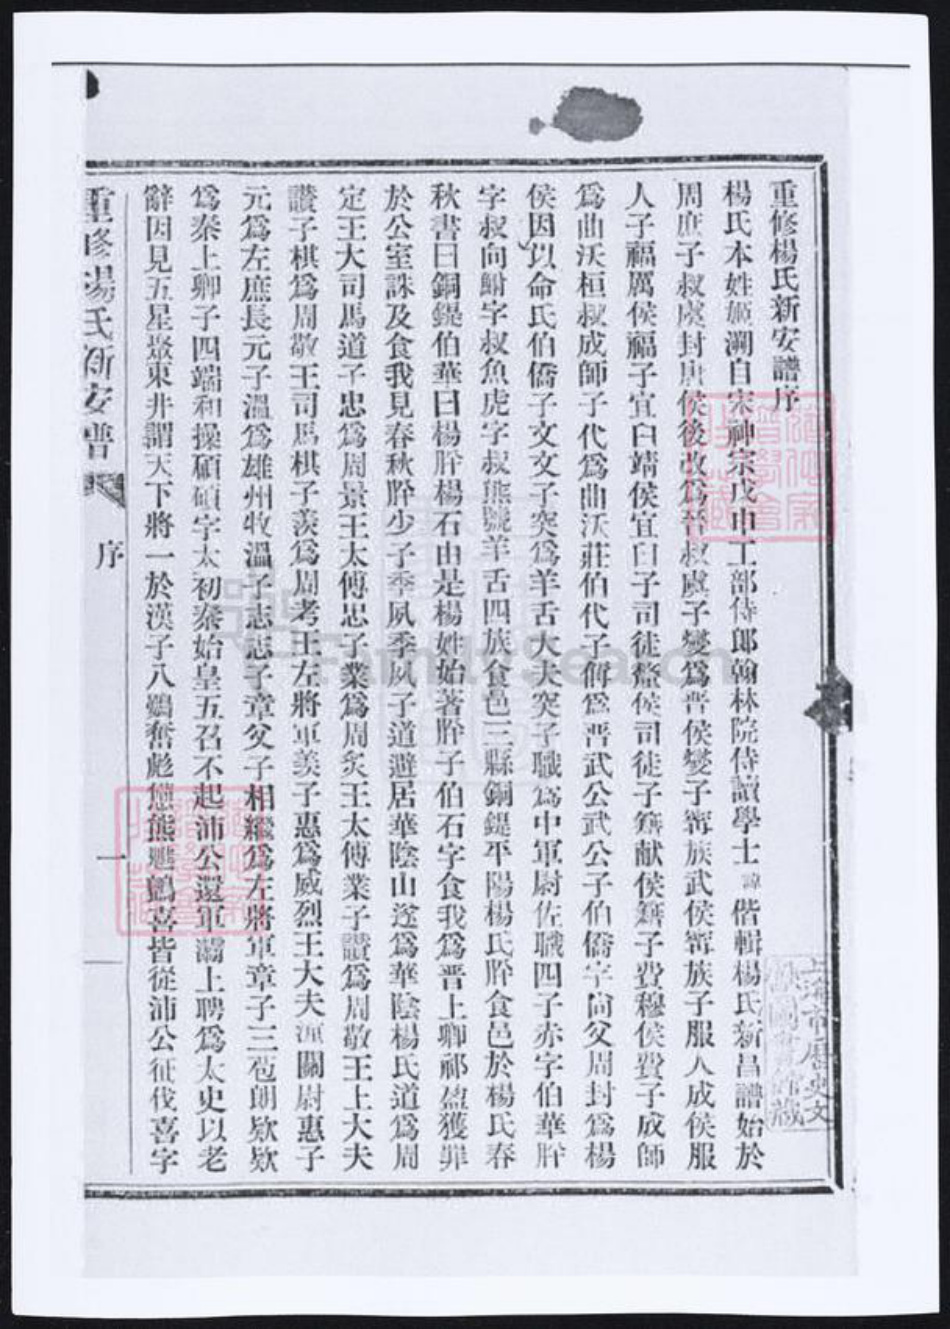 重修楊氏新安譜序
楊氏本姓姬溯自宋神宗戊申工部侍郎翰林院侍讀學士諱偕輯楊氏新昌譜始於
周庶子叔虞封唐侯後改為晉叔虞子燮為晉侯燮子甯族武侯甯族子服人成侯服
人子福厲侯福子宜臼靖侯宜臼子司徒釐侯司徒子籍献侯籍子費穆侯費子成師
為曲沃桓叔成師子代為曲沃莊伯代子偁為晋武公武公子伯僑字尚父周封為楊
侯因以命氏伯僑子文文子突為羊舌大夫突子職為中軍尉佐職四子赤字伯華肸
字叔向鮒字叔魚虎字叔熊號羊舌四族食邑三縣銅鍉平陽楊氏肸食邑於楊氏春
秋書曰銅鍉伯華曰楊肸楊石由是楊姓始著肸子伯石字食我為晋上卿祁盈獲罪
於公室誅及食我見春秋肸少子季夙季夙子道避居華陰山遂為華陰楊氏道為周
定王大司馬道子忠為周景王太傅忠子業為周炙王太傅業子讚為周敬王上大夫
讚子棋為周敬王司馬棋子羡為周考王左將軍羡子惠為威烈王大夫潼關尉惠子
元為左庶長元子溫為雄州牧溫子志志子章父子相繼為左將軍章子三苞朗欵欵
為秦上卿子四端和操碩碩字太初秦始皇五召不起浦公還軍灞上聘為太史以老
辭因見五星聚東井謂天下將一於漢子八鷃奮彪儓熊鸇鶴喜皆從浦公征伐喜字
重修楊氏新安譜
序
一
上海市歷史文
獻圖書館藏
FamilySearch